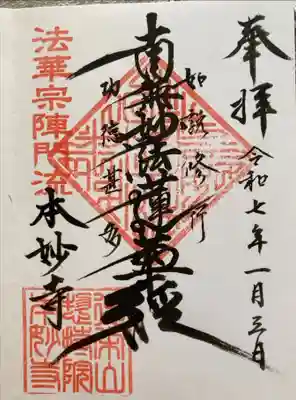 奉拝
令和七年一月三日
如説修行
南無妙法蓮華経
功徳甚多
法華宗陣門流
本妙寺